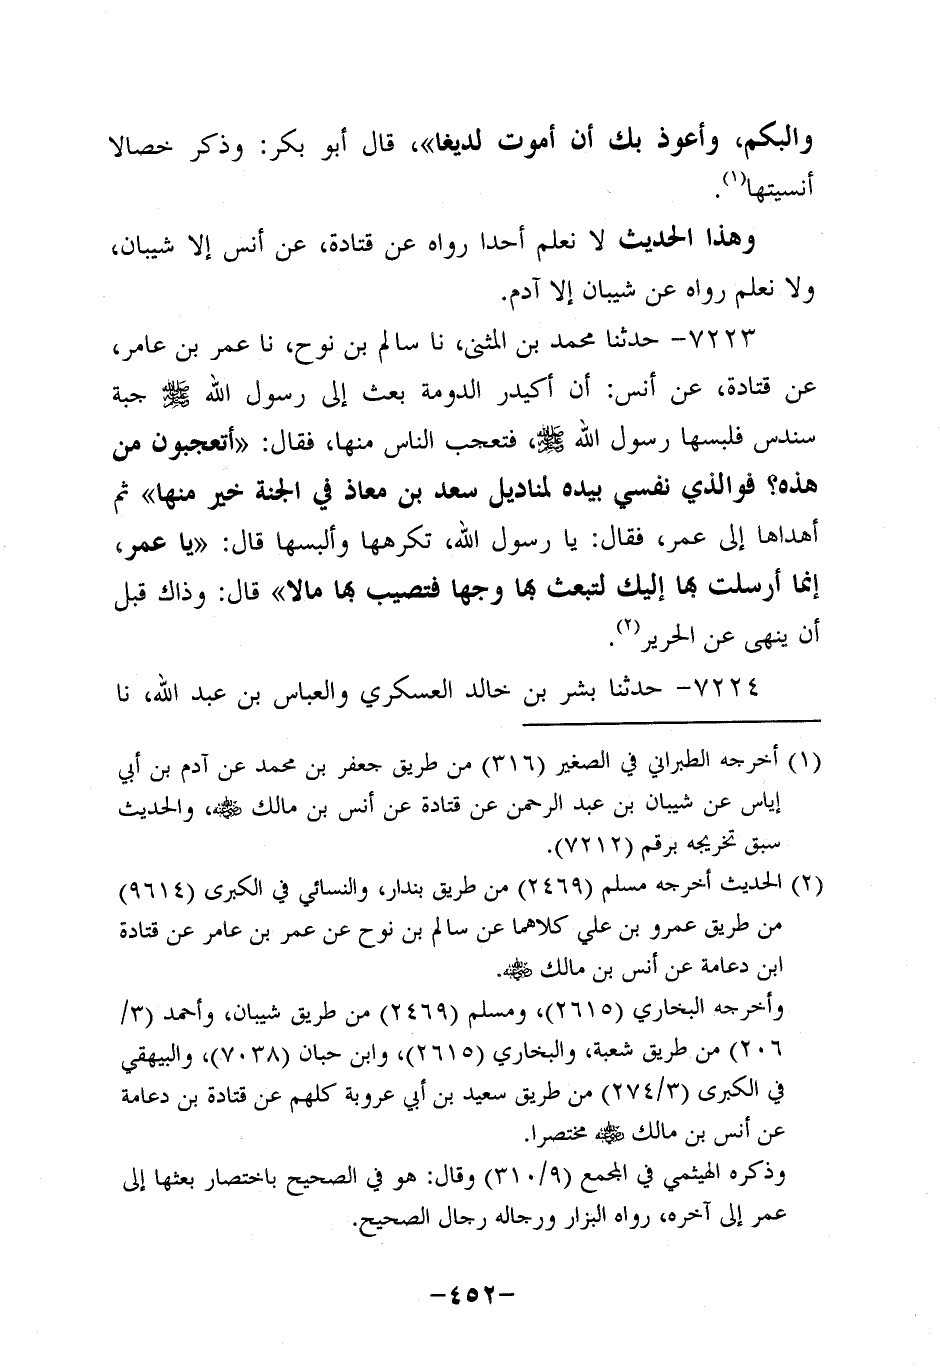 والبكم، وأعوذ بك أن أموت لديغا»، قال أبو بكر: وذكر خصالا
أنسيتها(١).
وهذا الحديث لا نعلم أحدا رواه عن قتادة، عن أنس إلا شيبان،
ولا نعلم رواه عن شيبان إلا آدم.
٧٢٢٣- حدثنا محمد بن المثنى، نا سالم بن نوح، نا عمر بن عامر،
عن قتادة، عن أنس: أن أكيدر الدومة بعث إلى رسول الله ﷺ جبة
سندس فلبسها رسول الله ﷺ، فتعجب الناس منها، فقال: «أتعجبون من
هذه؟ فوالذي نفسي بيده لمناديل سعد بن معاذ في الجنة خير منها» ثم
أهداها إلى عمر، فقال: يا رسول الله، تكرهها وألبسها قال: «يا عمر،
إنما أرسلت بها إليك لتبعث بها وجها فتصيب بها مالا» قال: وذاك قبل
أن ينهى عن الحرير(٢).
٧٢٢٤- حدثنا بشر بن خالد العسكري والعباس بن عبد الله، نا
(١) أخرجه الطبراني في الصغير (٣١٦) من طريق جعفر بن محمد عن آدم بن أبي
إياس عن شيبان بن عبد الرحمن عن قتادة عن أنس بن مالك ﵁، والحديث
سبق تخريجه برقم (٧٢١٢).
(٢) الحديث أخرجه مسلم (٢٤٦٩) من طريق بندار، والنسائي في الكبرى (٩٦١٤)
من طريق عمرو بن علي كلاهما عن سالم بن نوح عن عمر بن عامر عن قتادة
ابن دعامة عن أنس بن مالك ﵁.
وأخرجه البخاري (٢٦١٥)، ومسلم (٢٤٦٩) من طريق شيبان، وأحمد (٣/
٢٠٦) من طريق شعبة، والبخاري (٢٦١٥)، وابن حبان (٧٠٣٨)، والبيهقي
في الكبرى (٢٧٤/٣) من طريق سعيد بن أبي عروبة كلهم عن قتادة بن دعامة
عن أنس بن مالك ﵁ مختصرا.
وذكره الهيثمي في المجمع (٣١٠/٩) وقال: هو في الصحيح باختصار بعثها إلى
عمر إلى آخره، رواه البزار ورجاله رجال الصحيح.
-٤٥٢-